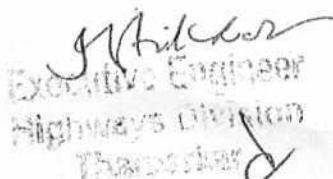 Executive Engineer
Highways Division
Tharparkar